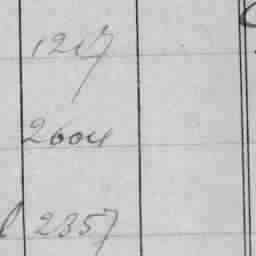 1217
2604
2357